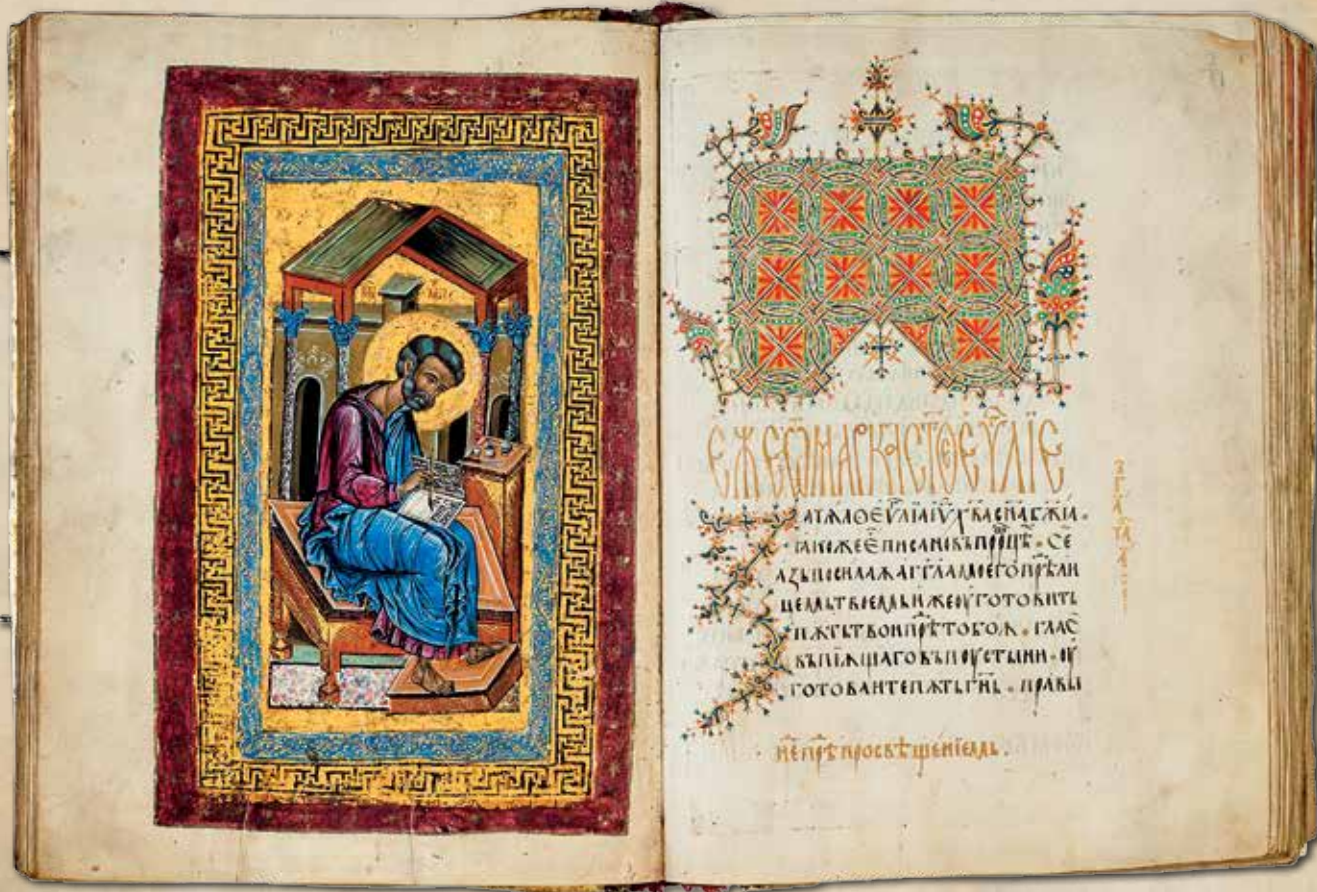 ЕЖЕѾМАРКАСТОЕЕѴЛІЕ
АЧѦЛОЕѴⷢ҇ЛІАІѴ҃ ХВАСН҃АБЖ҃ІА ·
ІАКОЖЕЕ҆ПИСАНОВЪПРⷪ҇Р҇ЦѢ · СЕ
АЗЬПОСИЛАѪАГГ҃ЛАМОЕГОПРѢⷣЛИ
ЦЕМЬТВОЕМЬИЖЕОУГОТОВИТЬ
ПѪТЬТВОИПРѢⷣТОБОѪ · ГЛАⷭ҇
ВЪПІѪЩАГОВЪПОУСТЫНИ · ОУ
ГОТОВАИТЕПѪТЬГН҃Ь · ПРАВЫ
НЕⷣ҇ПРѢⷣПРОСВѢЩЕНІЕМЬ ·